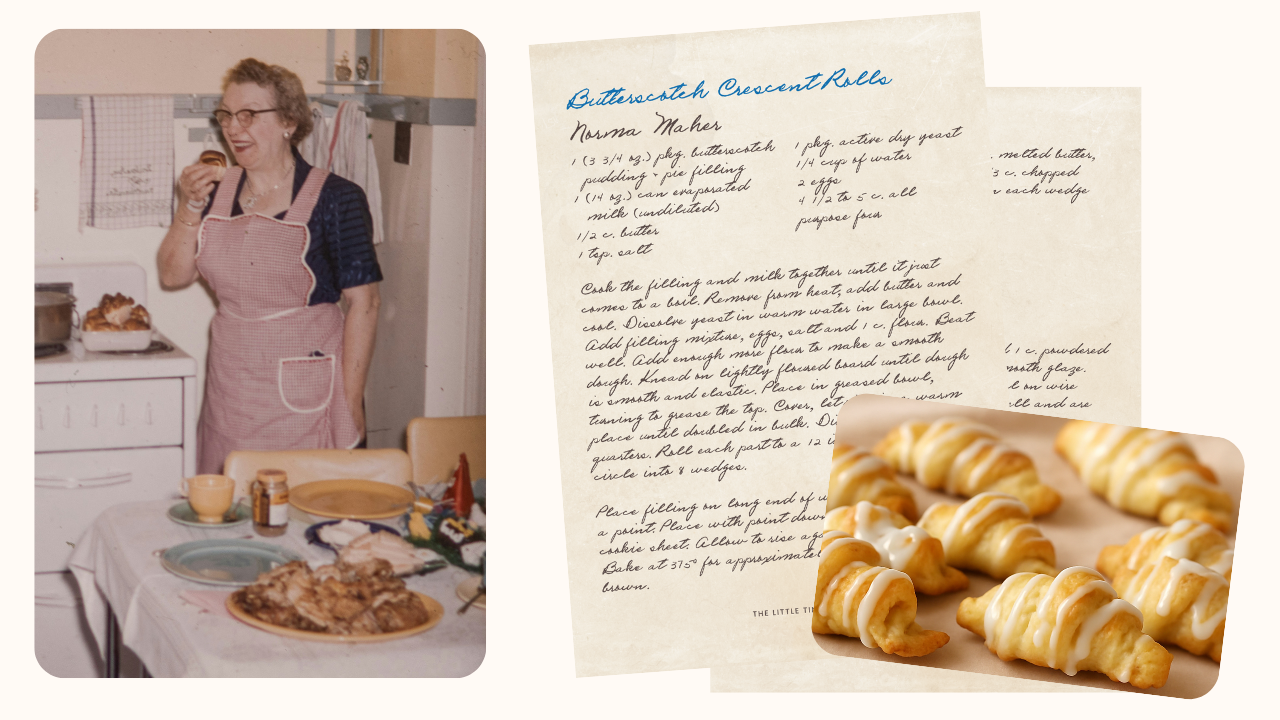 Butterscotch Crescent Rolls
Norma Maher
1 (3 3/4 oz.) pkg. butterscotch
pudding + pie filling
1 (14 oz.) can evaporated
milk (undiluted)
1/2 c. butter
1 tsp. salt
1 pkg. active dry yeast
1/4 cup of water
2 eggs
4 1/2 to 5 c. all
purpose four
Cook the filling and milk together until it just
comes to a boil. Remove from heat, add butter and
cool. Dissolve yeast in warm water in large bowl.
Add filling mixture, eggs, salt and 1 c. flour. Beat
well. Add enough more flour to make a smooth
dough. Knead on lightly floured board until dough
is smooth and elastic. Place in greased bowl,
turning to grease the top. Cover, let warm
place until doubled in bulk.
quarters. Roll each part to a 12
circle into 8 wedges.
Place filling on long end of
a point. Place with point down
cookie sheet. Allow to rise
Bake at 375° for
brown.
THE LITTLE
melted butter,
3 c. chopped
each wedge
1 c. powdered
glaze.
on wire
and are